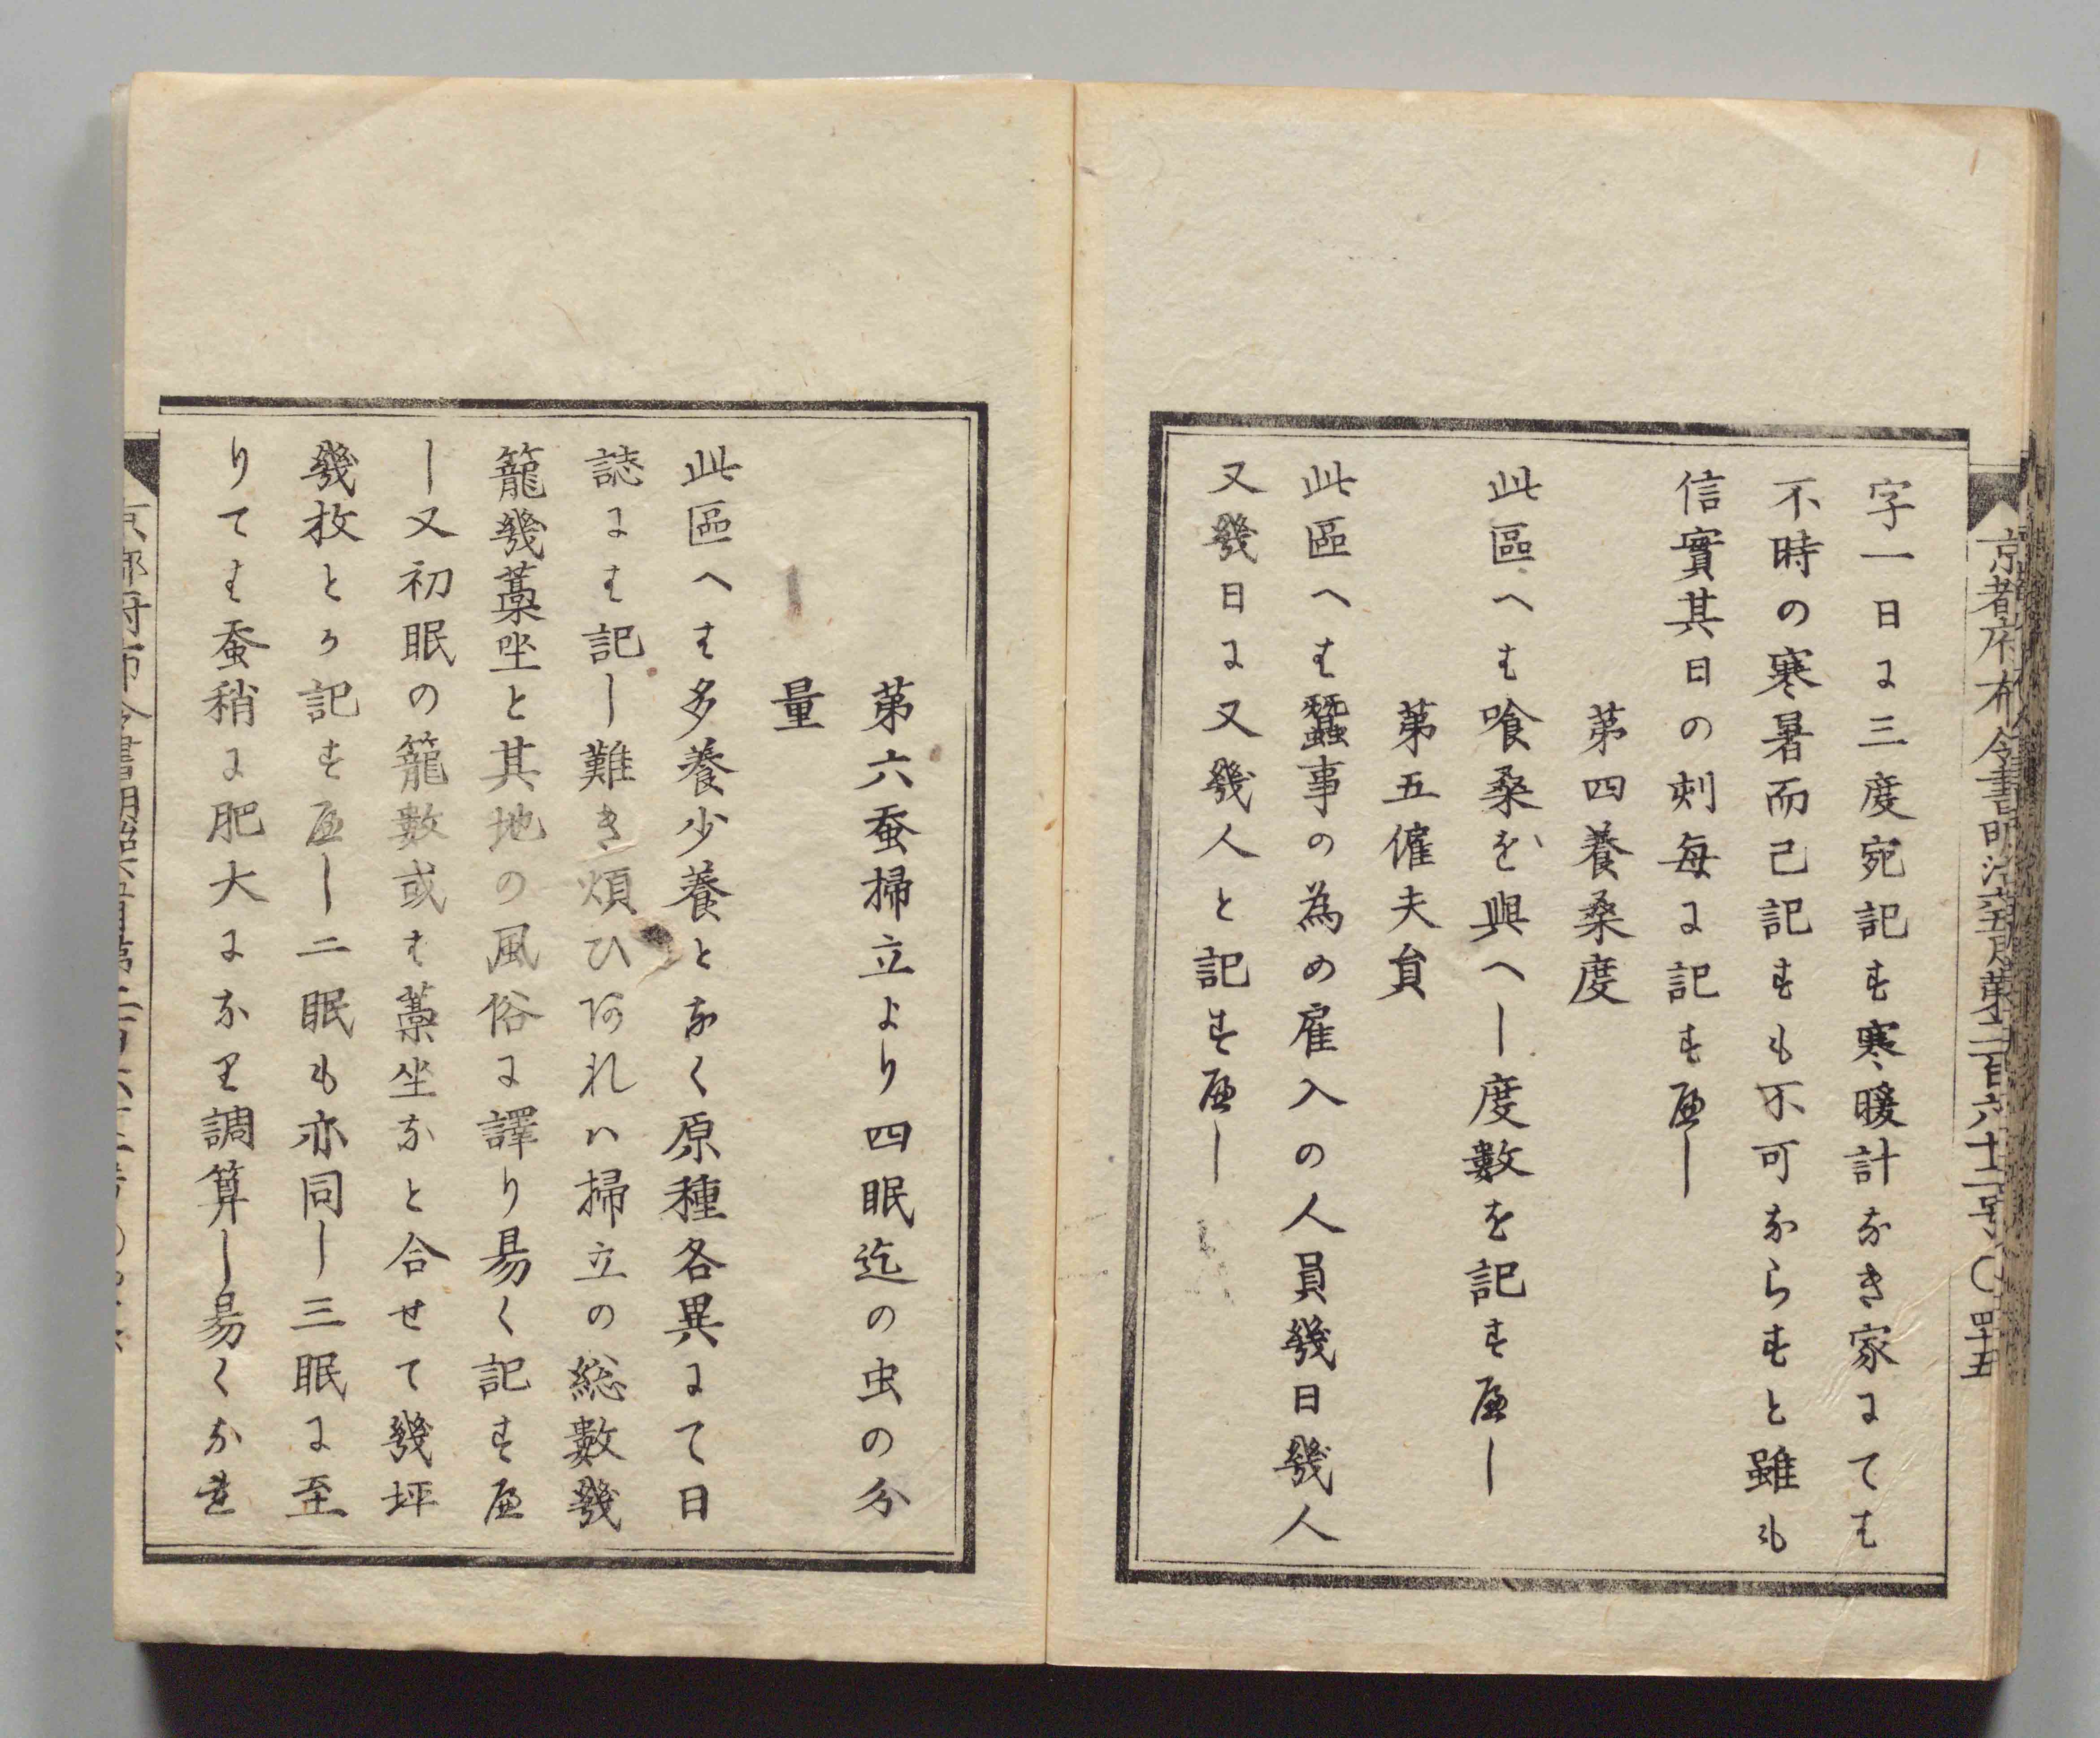 京都府布令書明治六年五月第二百六十二号〇四十五
字一日に三度宛記す寒暖計なき家にては
不時の寒暑而己記すも不可ならすと雖も
信實其日の刻毎に記すへし
第四養桑度
此區へは喰桑を與へし度數を記すへし
第五傭夫員
此區へは蠶事の為め雇入の人員幾日幾人
又幾日に又幾人と記すへし
第六蚕掃立より四眠迄の虫の分
量
此區へは多養少養となく原種各異にて日
誌には記し難き煩ひあれハ掃立の総數幾
籠幾藁坐と其地の風俗に譯り易く記すへ
し又初眠の籠數或は藁坐なと合せて幾坪
幾枚とか記すへし二眠も亦同し三眠に至
りては蚕稍に肥大になり調算し易くなれ
京都府布令書明治六年五月第二百六十二号〇